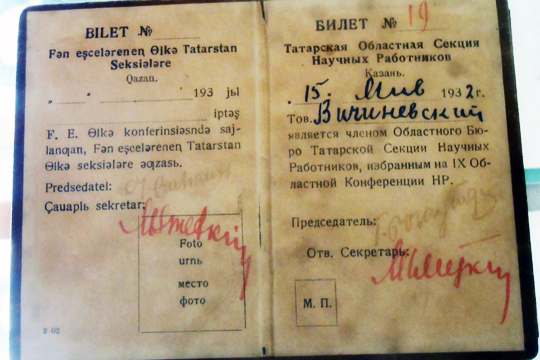 BILET №
Fən eşcelərenen Ɵlkə Tatarstan
Seksiələre
Qazan.
„ “ 193 jьl
iptəş
F. E. Ɵlkə konferinsiəsndə saj-
lanqan, Fən eşcelərenen Tatarstan
Ɵlkə seksiələre əqzasь.
Predsedatel:
Çauaplь sekretar:
Foto
urnь
место
фото
2 02
БИЛЕТ № 19
Татарская Областная Секция
Научных Работников
Казань.
15. 1932 г.
Тов.
является членом Областного Бю-
ро Татарской Секции Научных
Работников, избранным на IX Об-
ластной Конференции НР.
Председатель:
Отв. Секретарь:
М. П.